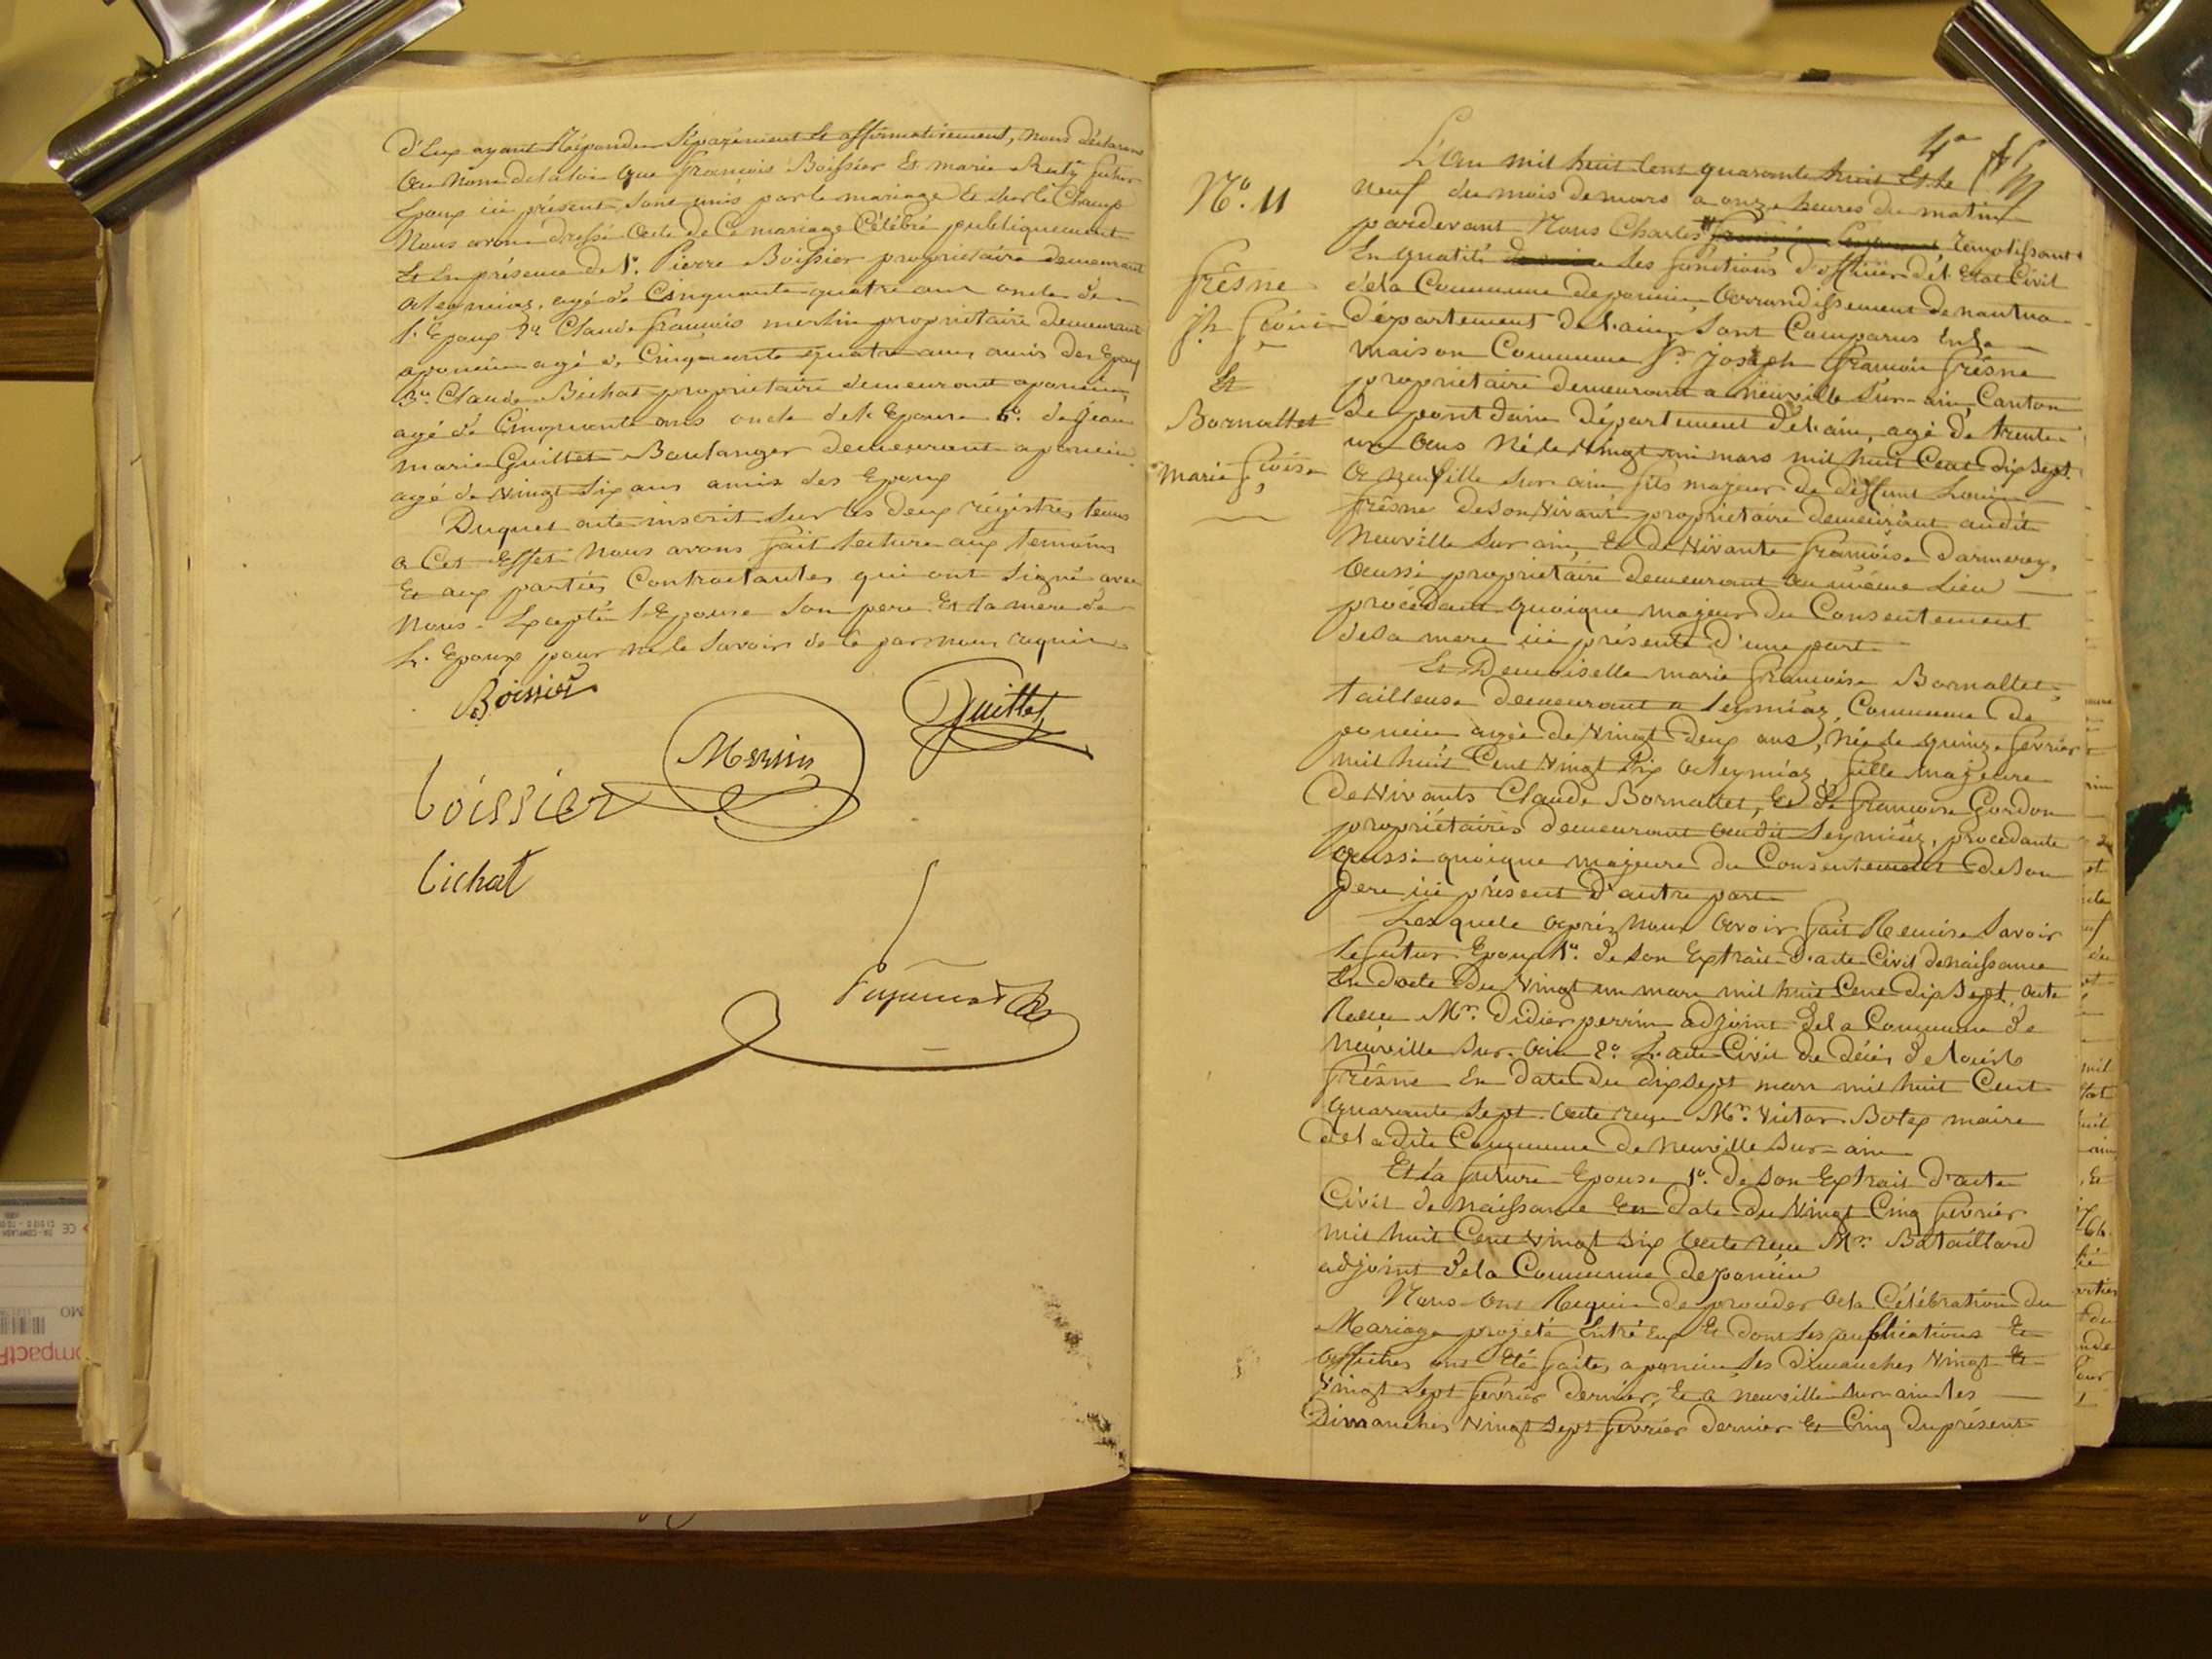 d'Eux ayant Répondu Séparément et affirmativement, nous déclarons
au Nom de la loi que françois Boissier Et marie Ruty futur
Epoux ici présent, sont unis par le mariage Et sur le Champ
Nous avons dressé acte de Ce mariage Célébré publiquement
Et En présence de 1o. Pierre Boissier propriétaire demeurant
a leymiaz, agé de Cinquante quatre ans oncle de
l'Epoux 2o Claude françois merlin propriétaire demeurant
aponcin agé de Cinquante quatre ans amis des Epoux
3o Claude Bichat propriétaire demeurant aponcin
agé de Cinquante ans oncle de l'Epouse de Jean
marie Guillet Boulanger demeurant aponcin
agé de Vingt Six ans amis des Epoux
Duquel acte inscrit Sur les deux régistres tenus
a Cet Effet Nous avons fait lecture aux temoins
Et aux parties Contractantes qui ont Signé avec
Nous Excepté l'Epouse Son pere Et la mere de
L'Epoux pour ne le Savoir de ce par nous requis
Boissier
Guillet
boissier
bichat
No. 11
fresne
jh
Et
Bornallet
marie
4e
L'an mil huit Cent quarante huit Et le
neuf du mois de mars a onze heures du matin
pardevant Nous Charles remplissant
En qualité les fonctions d'officier de l'Etat Civil
dela Commune deponcin, arrondissement de nantua
département de l'ain, Sont Comparus En la
maison Commune Sr. Joseph françois fresne
propriétaire demeurant a neuville Sur-ain, Canton
de pont dain Département de l'ain, agé de trente
un ans Né le Vingt un mars mil huit Cent dix Sept
a neuville Sur ain fils majeur de déffunt Louis
fresne de son Vivant propriétaire demeurant audit
Neuville Sur ain, Et de Vivante françoise Darmerey,
aussi propriétaire demeurant au même Lieu
procédant quoique majeur du Consentement
desa mere ici présente d'une part
Et Demoiselle marie françoise Bornallet
tailleuse demeurant a leymiaz, Commune de
poncin agée de Vingt deux ans, Née le quinze fevrier
mil huit Cent Vingt Six a leymiaz, fille majeure
de Vivants Claude Bornallet, Et de françoise Gordon
propriétaires demeurant audit Leymiaz, procédante
aussi quoique majeure du Consentement de Son
pere ici présent d'autre part
Lesquels après nous avoir fait Remise Savoir
le futur Epoux 1o. de Son Extrait d'acte Civil de naissance
En date du Vingt un mars mil huit Cent dix Sept, acte
Mr. Didier perrin adjoint dela Commune de
Neuville Sur-ain 2o. L'acte Civil de décès de Louis
fresne En date du dix Sept mars mil huit Cent
quarante Sept. acte reçu Mr. Victor Botex maire
dela dite Commune de neuville Sur-ain
Et la future Epouse 1o. de Son Extrait d'acte
Civil de naissance En date du Vingt Cinq fevrier
mil huit Cent Vingt Six acte reçu Mr. Bataillard
adjoint dela Commune deponcin
Nous ont Requis de procéder a la Célébration du
Mariage projeté Entre Eux Et dont les publications Et
affiches ont Eté faites, aponcin les dimanches Vingt Et
Vingt Sept fevrier dernier, Et a neuville Sur ain les
Dimanches Vingt Sept fevrier dernier Et Cinq du présent